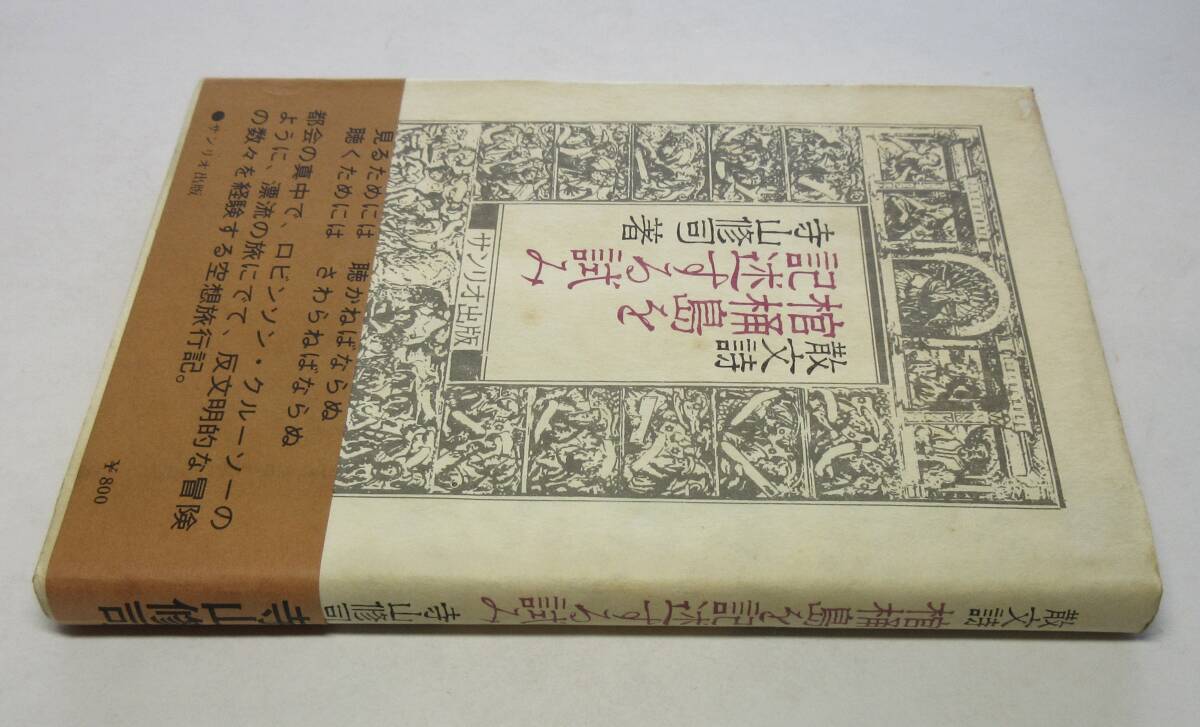 散文詩
棺桶島を
記述する試み
寺山修司 著
サンリオ出版
見るためには 聴かねばならぬ
聴くためには さわらねばならぬ
都会の真中で、ロビンソン・クルーソーの
ように、漂流の旅にでて、反文明的な冒険
の数々を経験する空想旅行記。
●サンリオ出版
¥800
散文詩 棺桶島を記述する試み 寺山修司
寺山修司